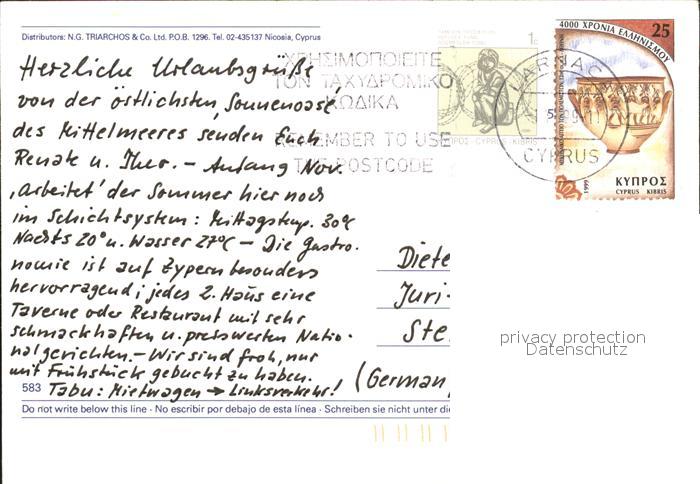 Distributors: N.G. TRIARCHOS & Co. Ltd. P.O.B. 1296. Tel. 02-435137 Nicosia, Cyprus
Herzliche Urlaubsgrüße
von der örtlichsten, Sonnenoase,
des Mittelmeeres senden Euch
Renate u. Theo. – Anfang Nov.
'arbeitet' der Sommer hier noch
im Schichtsystem: Mittagstemp. 30°
Nachts 20° u. Wasser 27°C – Die Gastro-
nomie ist auf Zypern besonders
hervorragend; jedes 2. Haus eine
Taverne oder Restaurant mit sehr
schmackhaften u. preiswerten Natio-
nalgerichten. – Wir sind froh, nur
mit Frühstück gebucht zu haben.
583 Tabu: Mietwagen → Linksverkehr!
Do not write below this line · No escribir por debajo de esta línea · Schreiben sie nicht unter die
ΧΡΗΣΙΜΟΠΟΙΕΙΤΕ
ΤΟΝ ΤΑΧΥΔΡΟΜΙΚΟ
ΚΩΔΙΚΑ
REMEMBER TO USE
THE POSTCODE
1c
ΚΥΠΡΟΣ · CYPRUS · KIBRIS
LARNACA
CYPRUS
4000 ΧΡΟΝΙΑ ΕΛΛΗΝΙΣΜΟΥ
25
1999
ΚΥΠΡΟΣ
CYPRUS KIBRIS
Diete
Juri-
Ste
(German
privacy protection
Datenschutz